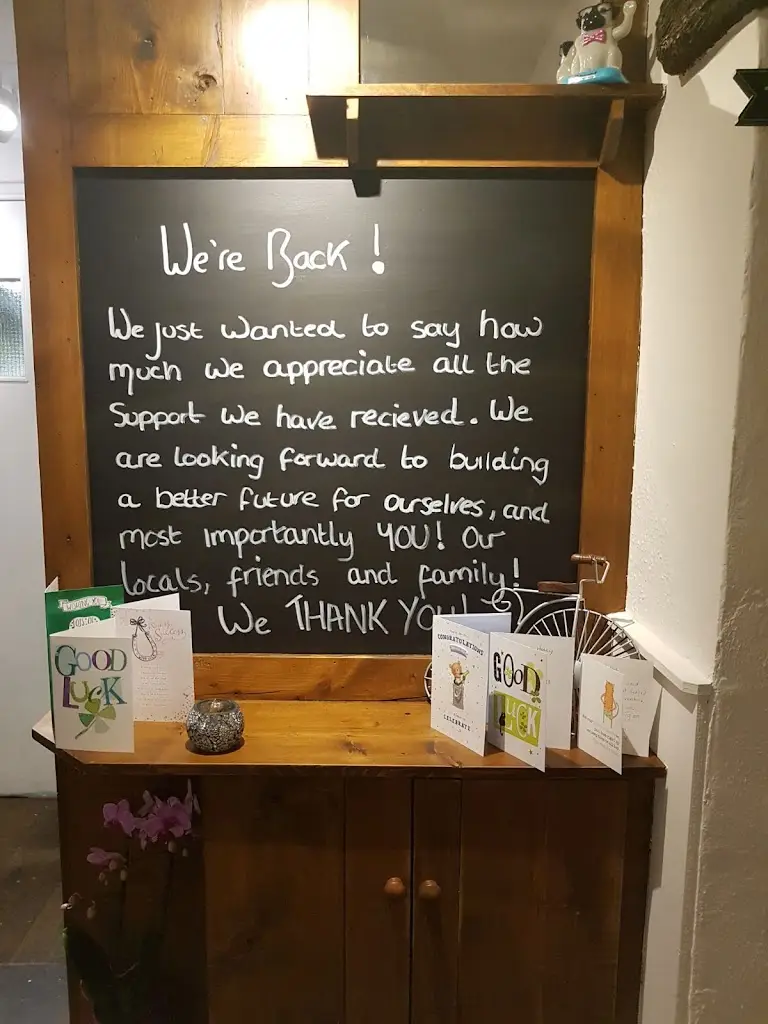 We're Back !
We just wanted to say how
much we appreciate all the
support we have recieved. We
are looking forward to building
a better future for ourselves, and
most importantly YOU! Our
locals, friends and family!
We THANK YOU!
GOOD
LUCK
CONGRATULATIONS
CELEBRATE
GOOD
LUCK